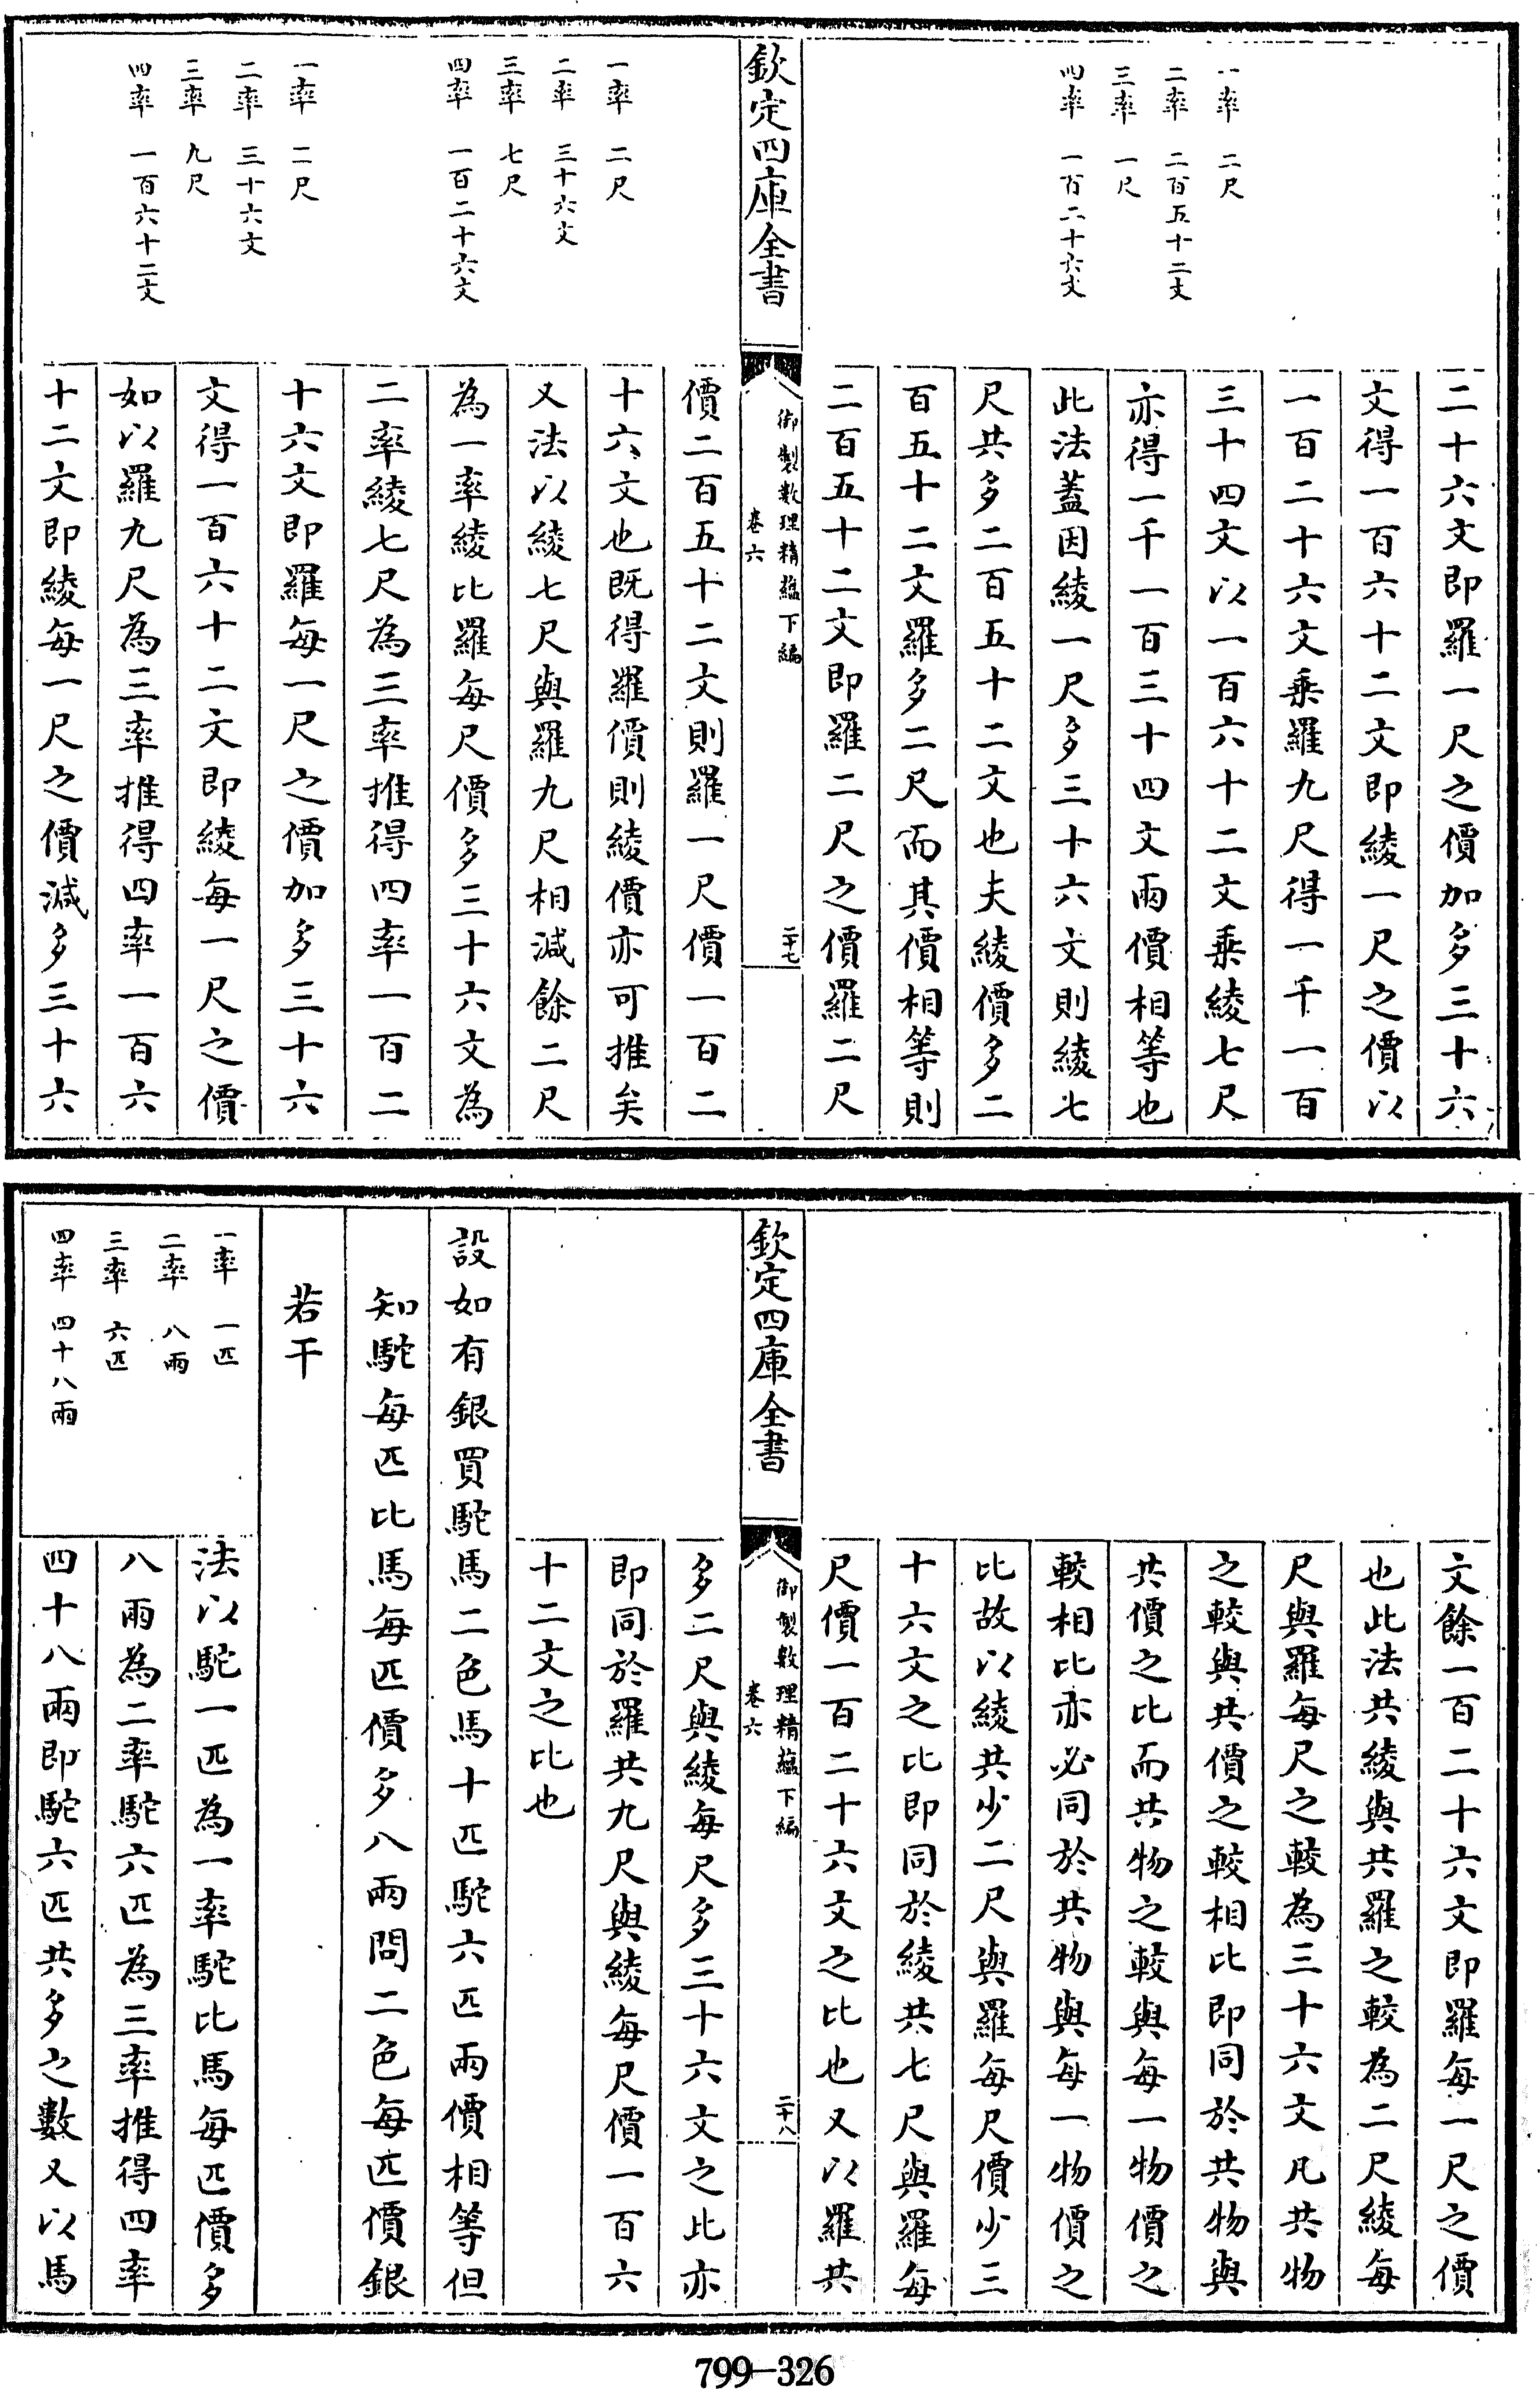 一率　二尺
二率　二百五十二文
三率　一尺
四率　一百二十六文
二十六文即羅一尺之價加多三十六
文得一百六十二文即綾一尺之價以
一百二十六文乘羅九尺得一千一百
三十四文以一百六十二文乘綾七尺
亦得一千一百三十四文兩價相等也
此法蓋因綾一尺多三十六文則綾七
尺共多二百五十二文也夫綾價多二
百五十二文羅多二尺而其價相等則
二百五十二文即羅二尺之價羅二尺
欽定四庫全書
御製數理精蘊下編
卷六
二十七
一率　二尺
二率　三十六文
三率　七尺
四率　一百二十六文
一率　二尺
二率　三十六文
三率　九尺
四率　一百六十二文
價二百五十二文則羅一尺價一百二
十六文也既得羅價則綾價亦可推矣
又法以綾七尺與羅九尺相減餘二尺
為一率綾比羅每尺價多三十六文為
二率綾七尺為三率推得四率一百二
十六文即羅每一尺之價加多三十六
文得一百六十二文即綾每一尺之價
如以羅九尺為三率推得四率一百六
十二文即綾每一尺之價減多三十六
文餘一百二十六文即羅每一尺之價
也此法共綾與共羅之較為二尺綾每
尺與羅每尺之較為三十六文凡共物
之較與共價之較相比即同於共物與
共價之比而共物之較與每一物價之
較相比亦必同於共物與每一物價之
比故以綾共少二尺與羅每尺價少三
十六文之比即同於綾共七尺與羅每
尺價一百二十六文之比也又以羅共
欽定四庫全書
御製數理精蘊下編
卷六
二十八
多二尺與綾每尺多三十六文之比亦
即同於羅共九尺與綾每尺價一百六
十二文之比也
設如有銀買駝馬二色馬十匹駝六匹兩價相等但
知駝每匹比馬每匹價多八兩問二色每匹價銀
若干
一率　一匹
二率　八兩
三率　六匹
四率　四十八兩
法以駝一匹為一率駝比馬每匹價多
八兩為二率駝六匹為三率推得四率
四十八兩即駝六匹共多之數又以馬
799-326